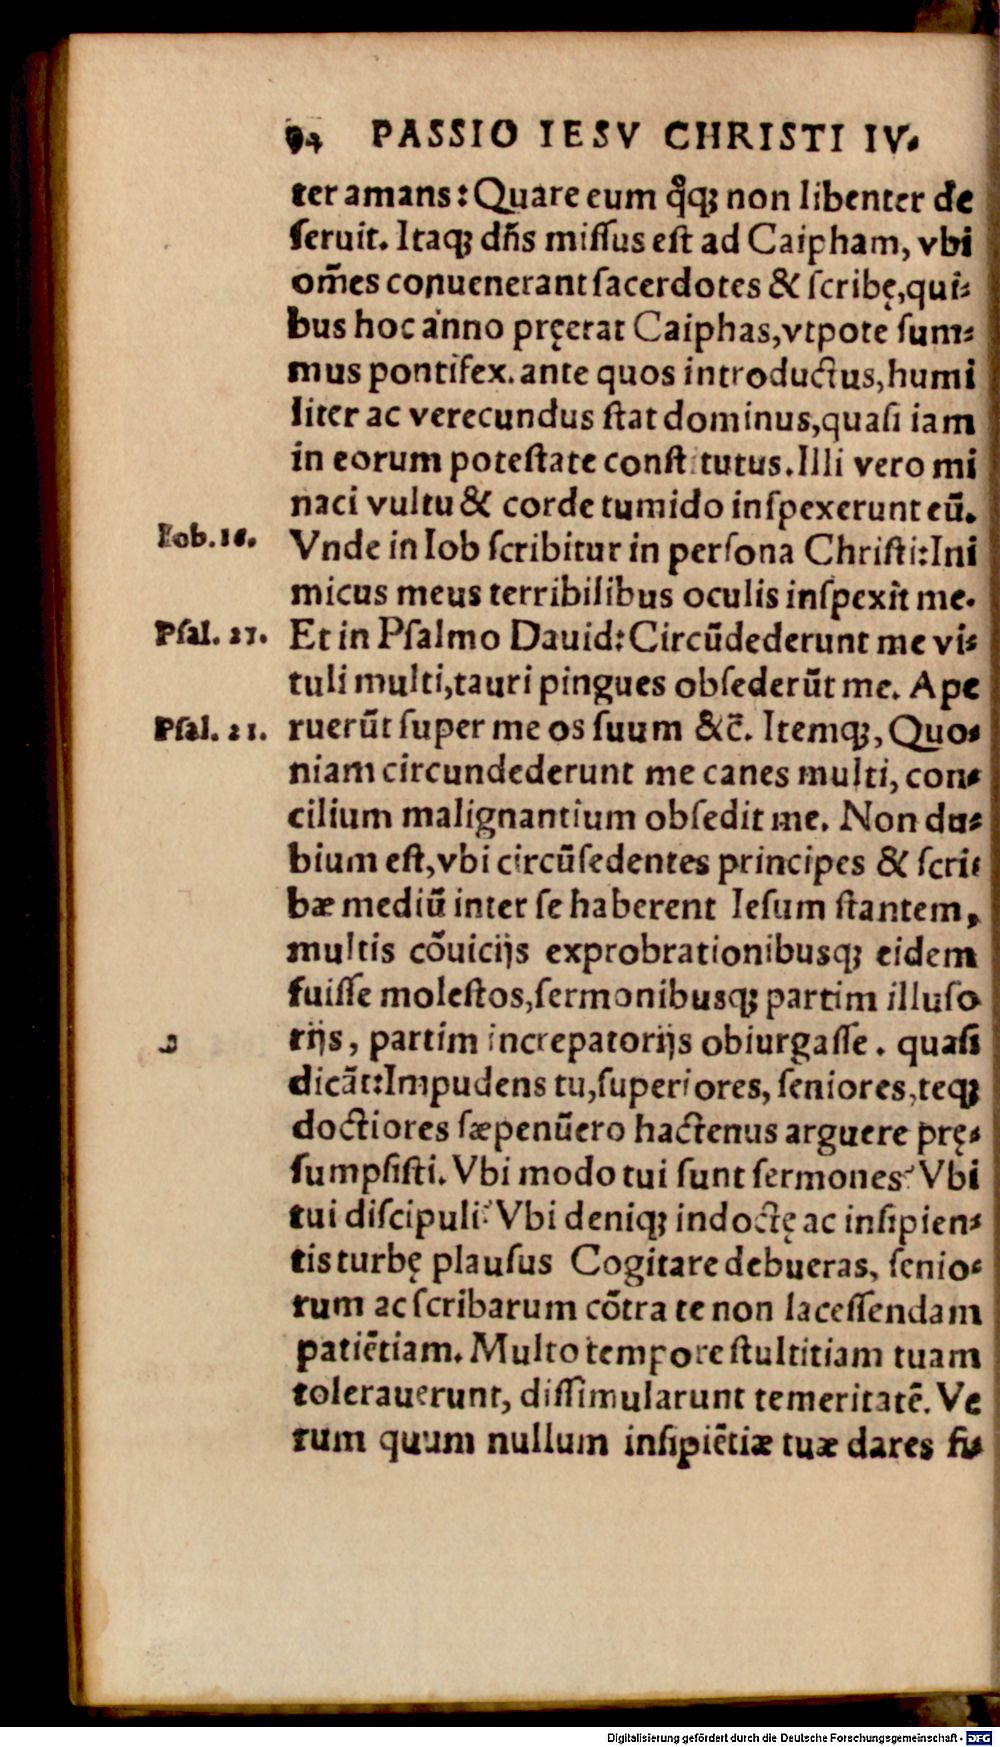 94 PASSIO IESV CHRISTI IV.
ter amans: Quare eum qͦq; non libenter de
ſeruit. Itaq; dn̄s miſſus eſt ad Caipham, vbi
om̄es conuenerant ſacerdotes & ſcribę, qui⸗
bus hoc anno pręerat Caiphas, vtpote ſum⸗
mus pontifex. ante quos introductus, humi
liter ac verecundus ſtat dominus, quaſi iam
in eorum poteſtate conſt tutus. Illi vero mi
naci vultu & corde tumido inſpexerunt eū.
Iob. 16.
Vnde in Iob ſcribitur in perſona Chriſti: Ini
micus meus terribilibus oculis inſpexit me.
Pſal. 21.
Et in Pſalmo Dauid: Circūdederunt me vi⸗
tuli multi, tauri pingues obſederūt me. Ape
Pſal. 21.
ruerūt ſuper me os ſuum &c̄. Itemq;, Quo⸗
niam circundederunt me canes multi, con⸗
cilium malignantium obſedit me. Non du⸗
bium eſt, vbi circūſedentes principes & ſcri⸗
bæ mediū inter ſe haberent Ieſum ſtantem,
multis cōuicijs exprobrationibusq; eidem
fuiſſe moleſtos, ſermonibusq; partim illuſo
rijs, partim increpatorijs obiurgaſſe. quaſi
dicāt: Impudens tu, ſuperiores, ſeniores, teq;
doctiores ſæpenūero hactenus arguere prę⸗
ſumpſiſti. Vbi modo tui ſunt ſermones? Vbi
tui diſcipuli? Vbi deniq; indoctę ac inſipien⸗
tis turbę plauſus Cogitare debueras, ſenio⸗
rum ac ſcribarum cōtra te non laceſſendam
patiētiam. Multo tempore ſtultitiam tuam
tolerauerunt, diſſimularunt temeritatē. Ve
rum quum nullum inſipiētiæ tuæ dares fi⸗
Digitalisierung gefördert durch die Deutsche Forschungsgemeinschaft - DFG